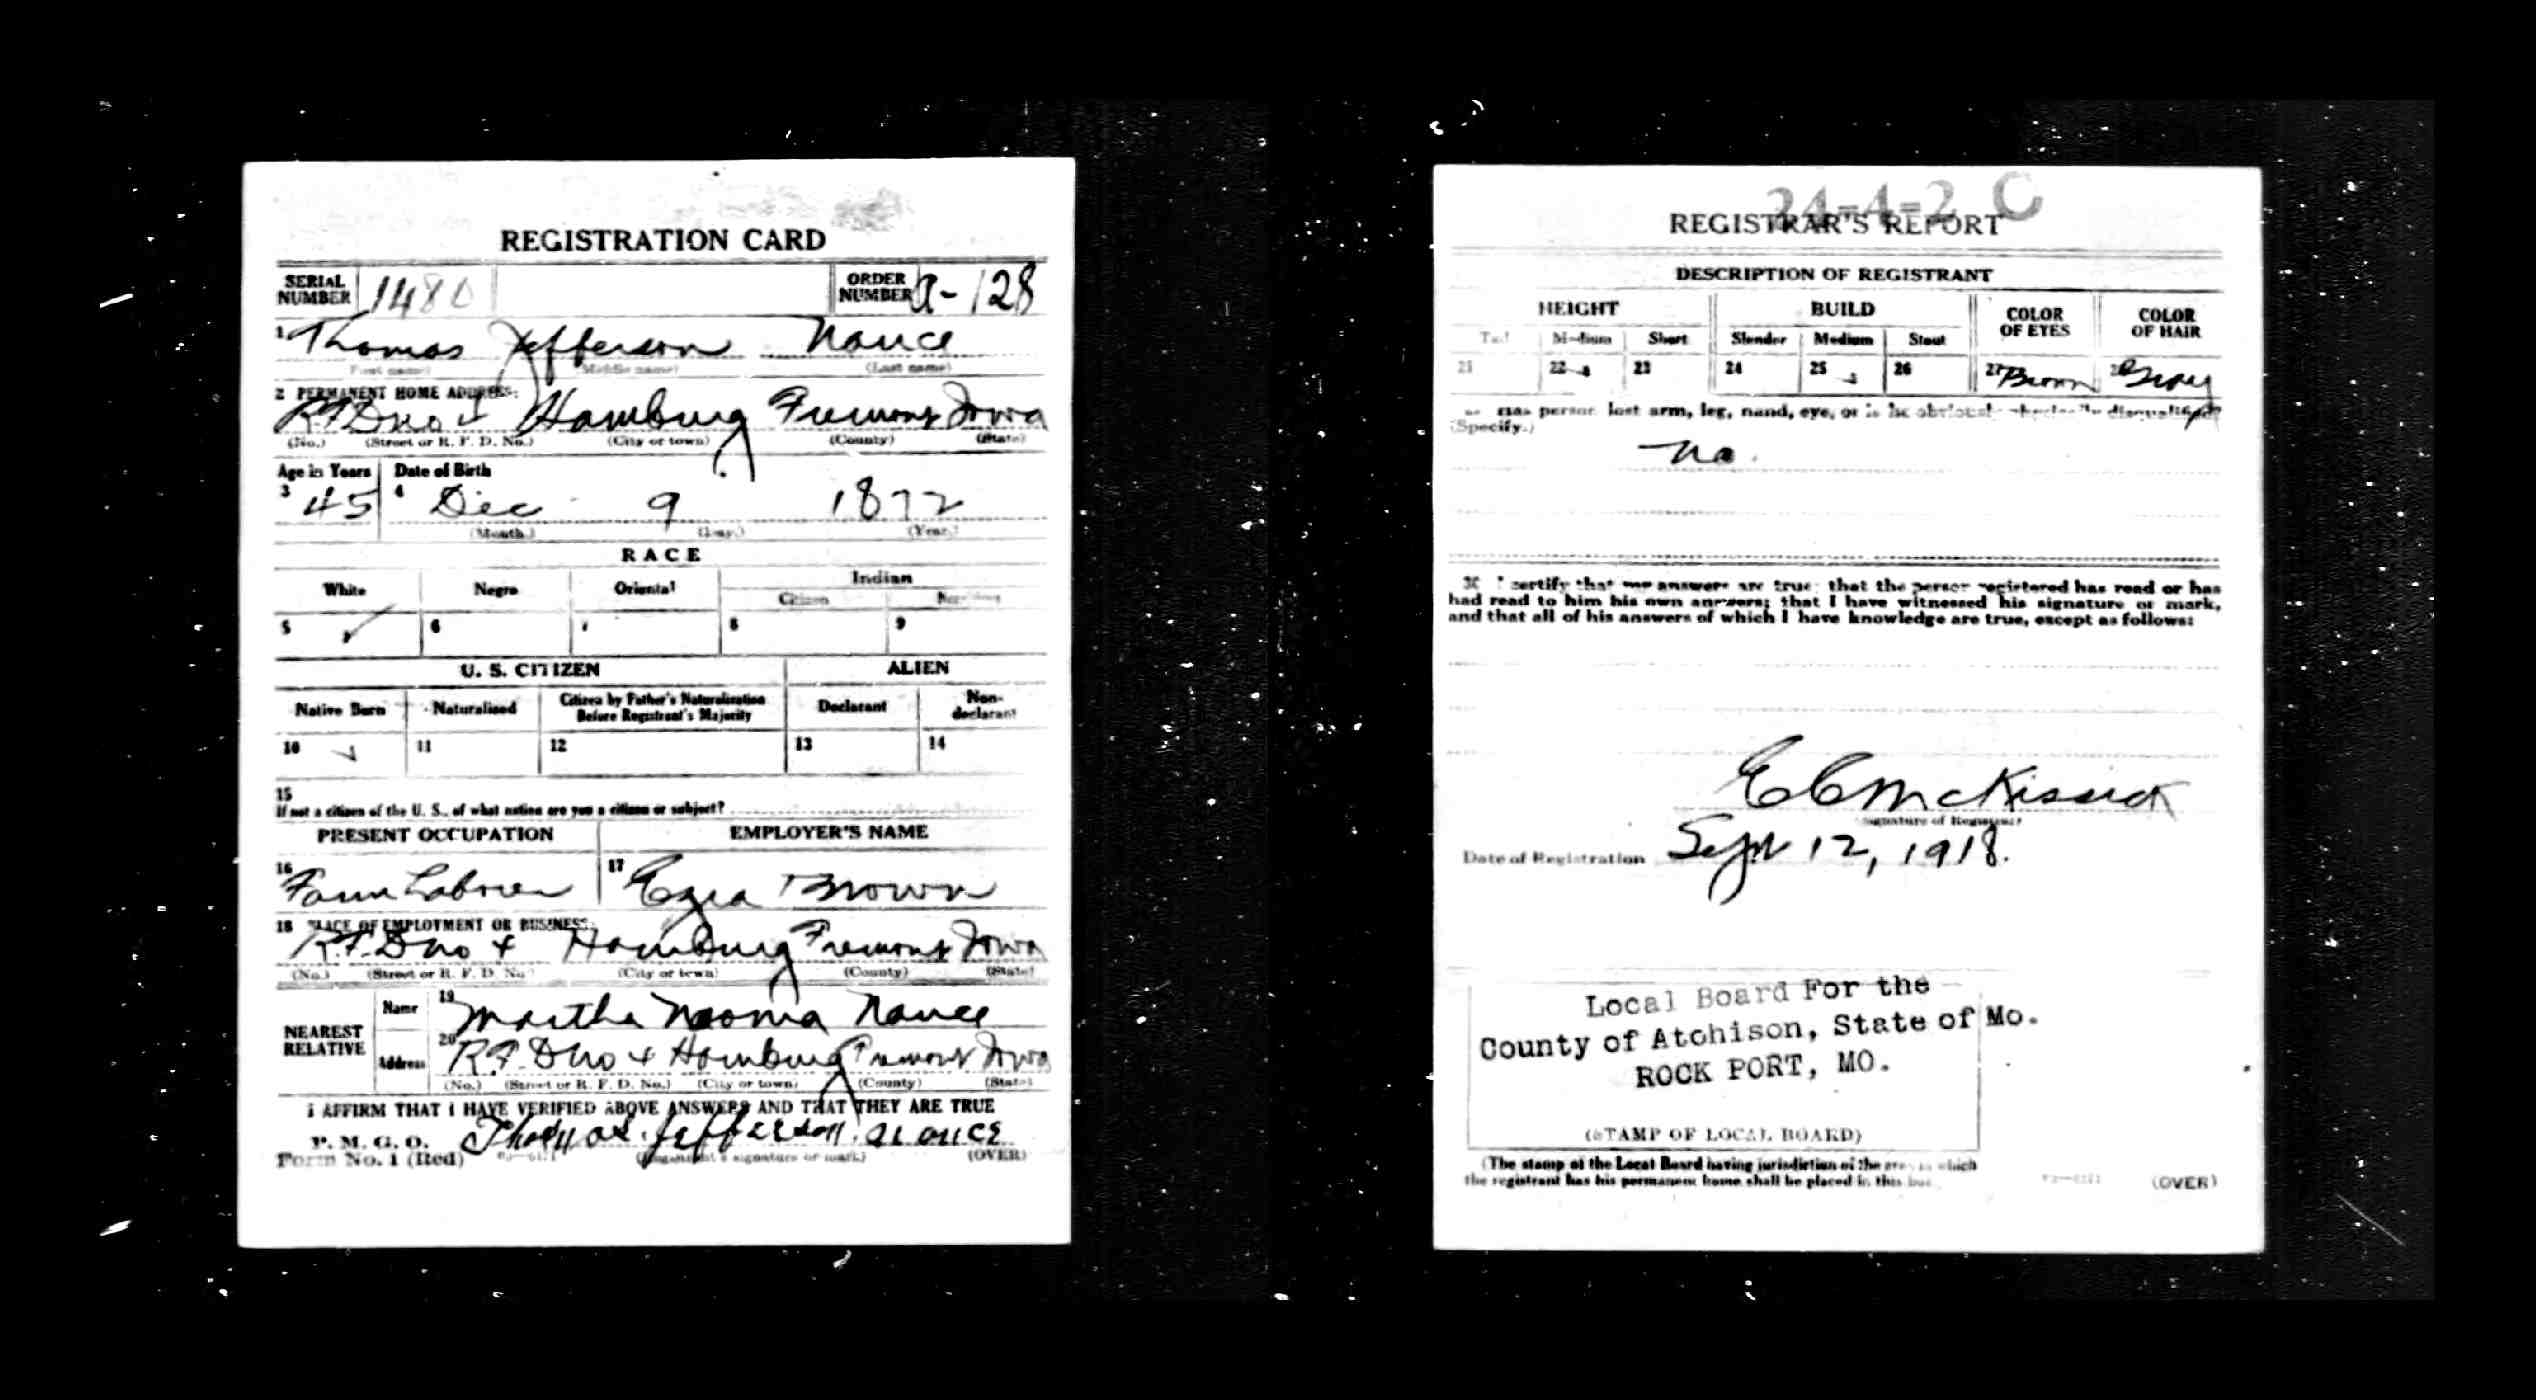 REGISTRATION CARD
SERIAL NUMBER 148
ORDER NUMBER A-128
1 Thomas Jefferson Nance
(First name) (Middle name) (Last name)
2 PERMANENT HOME ADDRESS:
R.F.D no Hamburg Fremont Iowa
(No.) (Street or R. F. D. No.) (City or town) (County) (State)
Age in Years Date of Birth
3 45 4 Dec 9 1872
(Month.) (Day.) (Year.)
RACE
White Negro Oriental Indian
Citizen
5 ✓ 6 7 8 9
U. S. CITIZEN ALIEN
Native Born Naturalized Citizen by Father's Naturalization Before Registrant's Majority Declarant Non-declarant
10 ✓ 11 12 13 14
15
If not a citizen of the U. S., of what nation are you a citizen or subject?
PRESENT OCCUPATION EMPLOYER'S NAME
16 Farm Laborer 17 Ezra Brown
18 PLACE OF EMPLOYMENT OR BUSINESS:
R.F.D no Hamburg Fremont Iowa
(No.) (Street or R. F. D. No.) (City or town) (County) (State)
NEAREST RELATIVE
Name 19 Martha Naoma Nance
Address 20 R.F.D no Hamburg Fremont Iowa
(No.) (Street or R. F. D. No.) (City or town) (County) (State)
I AFFIRM THAT I HAVE VERIFIED ABOVE ANSWERS AND THAT THEY ARE TRUE
P. M. G. O. Thomas Jefferson Nance
Form No. 1 (Red) (Registrant's signature or mark) (OVER)
24-4-2 C
REGISTRAR'S REPORT
DESCRIPTION OF REGISTRANT
HEIGHT BUILD COLOR OF EYES COLOR OF HAIR
Tall Medium Short Slender Medium Stout
21 22 ✓ 23 24 25 ✓ 26 27 Brown 28 Gray
Has person lost arm, leg, hand, eye, or is he obviously physically disqualified?
(Specify.)
No.
30 I certify that my answers are true; that the person registered has read or has
had read to him his own answers; that I have witnessed his signature or mark,
and that all of his answers of which I have knowledge are true, except as follows:
E C McKissick
Signature of Registrar
Date of Registration Sept 12, 1918.
Local Board For the
County of Atchison, State of Mo.
ROCK PORT, MO.
(STAMP OF LOCAL BOARD)
(The stamp of the Local Board having jurisdiction of the area in which
the registrant has his permanent home shall be placed in this box.
(OVER)